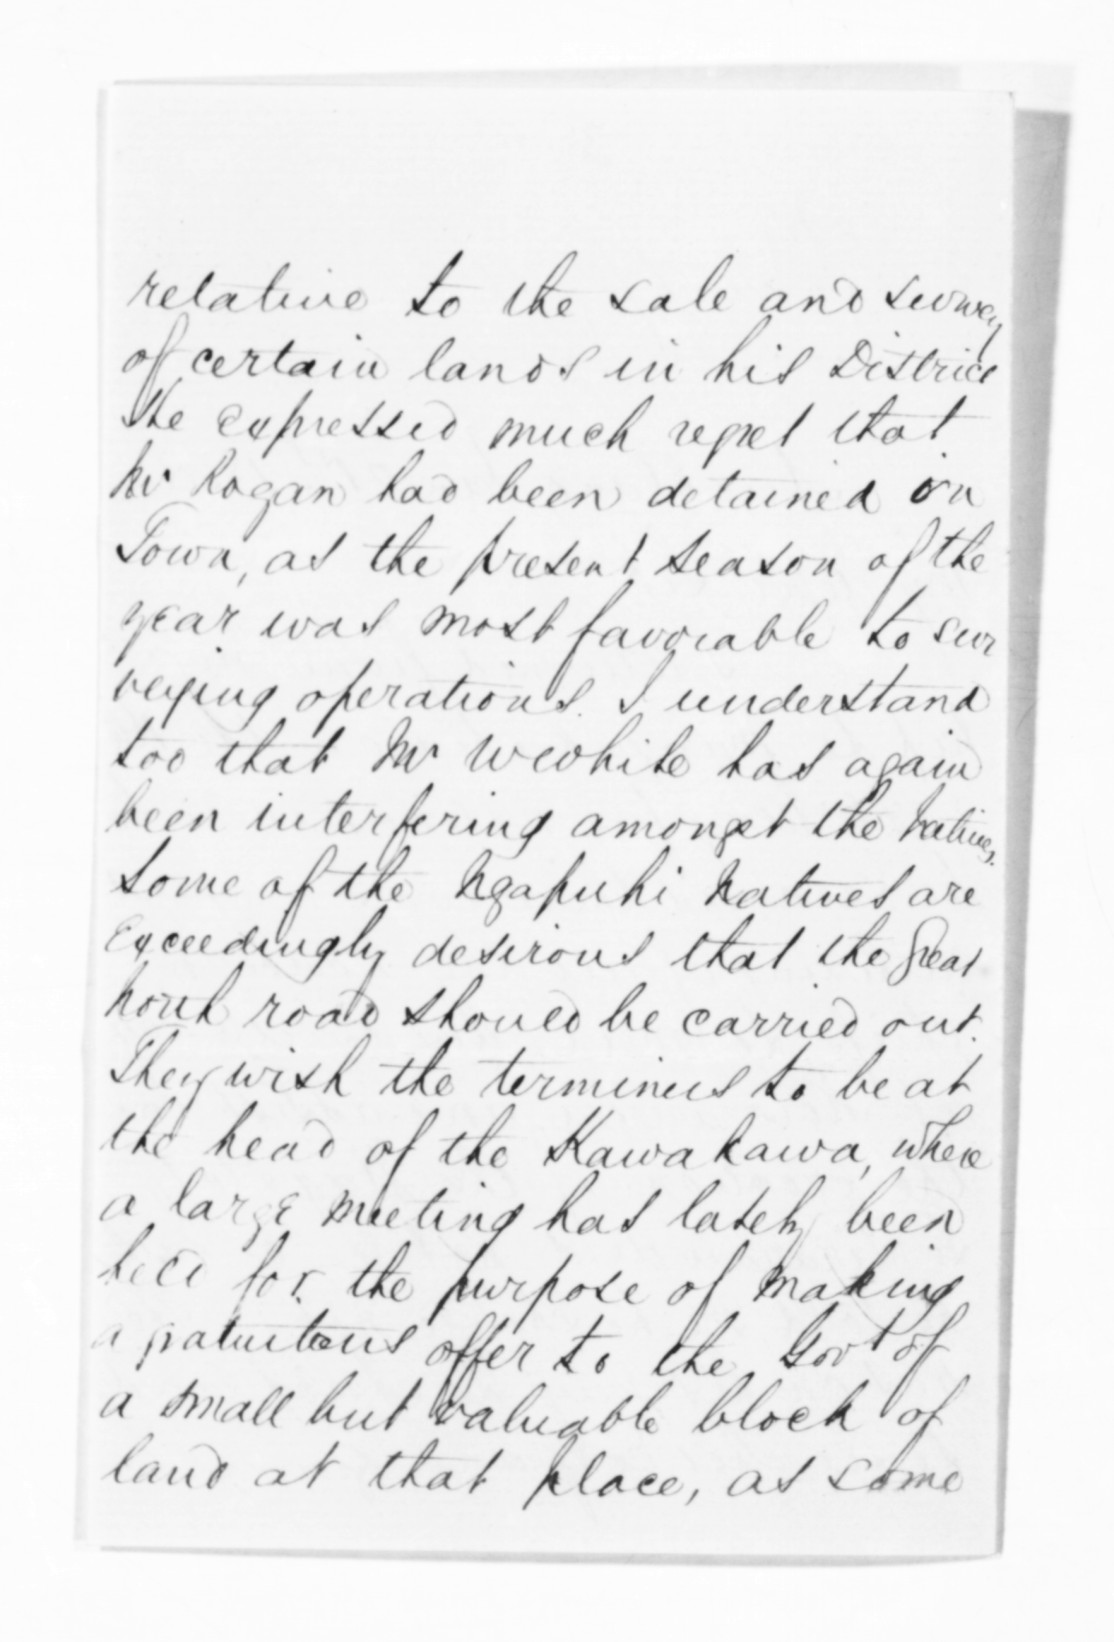 relative to the sale and survey
of certain lands in his District
He expressed much regret that
Mr Rogan had been detained in
Town, as the present season of the
year was most favorable to sur
veying operations. I understand
too that Mr White has again
been interfering amongst the Natives.
Some of the Ngapuhi Natives are
exceedingly desirous that the Great
North road should be carried out.
They wish the terminus to be at
the head of the Kawakawa, where
a large meeting has lately been
held for the purpose of making
a gratuitous offer to the Govt of
a small but valuable block of
land at that place, as some